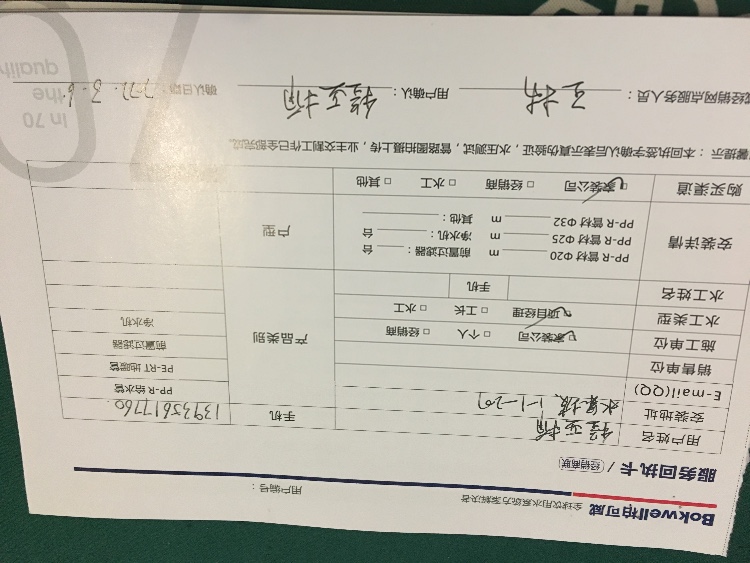 Bokwell柏可威 全球饮用水系统方案解决者
用户编号：
服务回执卡 / 经销商联
用户姓名 程亚楠 手机 13935617760
安装地址 1-1-201
E-mail(QQ)
销售单位
施工单位 家装公司 □ 个人 □ 经销商
水工类型 项目经理 □ 工长 □ 水工
水工姓名 手机
产品类别
PP-R 给水管
PE-RT 地暖管
前置过滤器
净水机
安装详情
PP-R 管材 Φ20 m 前置过滤器： 台
PP-R 管材 Φ25 m 净水机： 台
PP-R 管材 Φ32 m 其他：
户型
购买渠道 □ 家装公司 □ 经销商 □ 水工 □ 其他
馨提示：本回执签字确认后表示真伪验证，水压测试，管路图拍摄上传，业主交割工作已全部完成。
经销网点服务人员： 王栋 用户确认： 程亚楠 确认日期：
In 70
the
quality